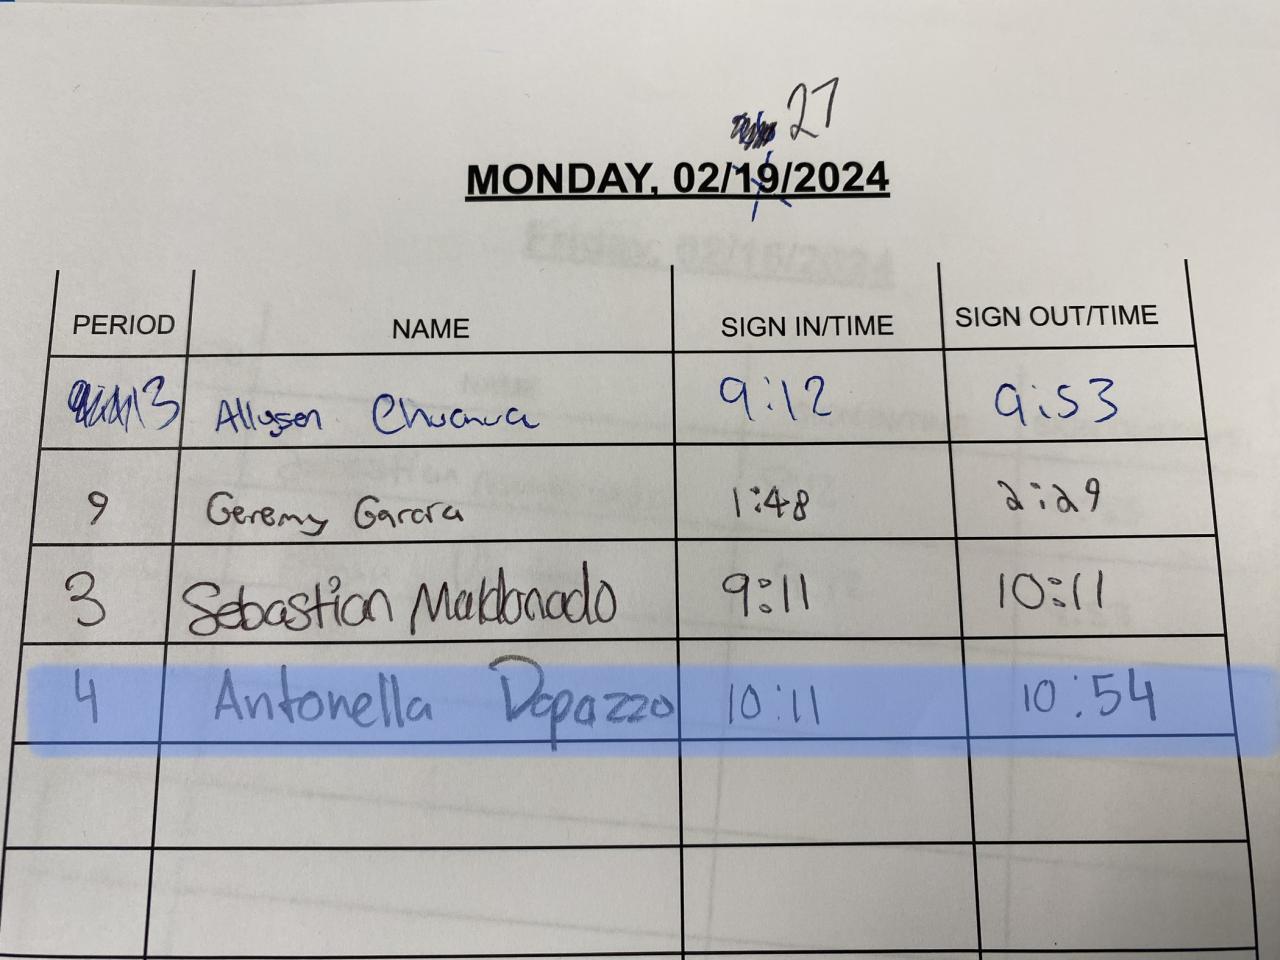 27
MONDAY, 02/19/2024
PERIOD NAME SIGN IN/TIME SIGN OUT/TIME
3 Allyson 9:12 9:53
9 Geremy Garcia 1:48 2:29
3 Sebastian Maldonado 9:11 10:11
4 Antonella Dopazzo 10:11 10:54